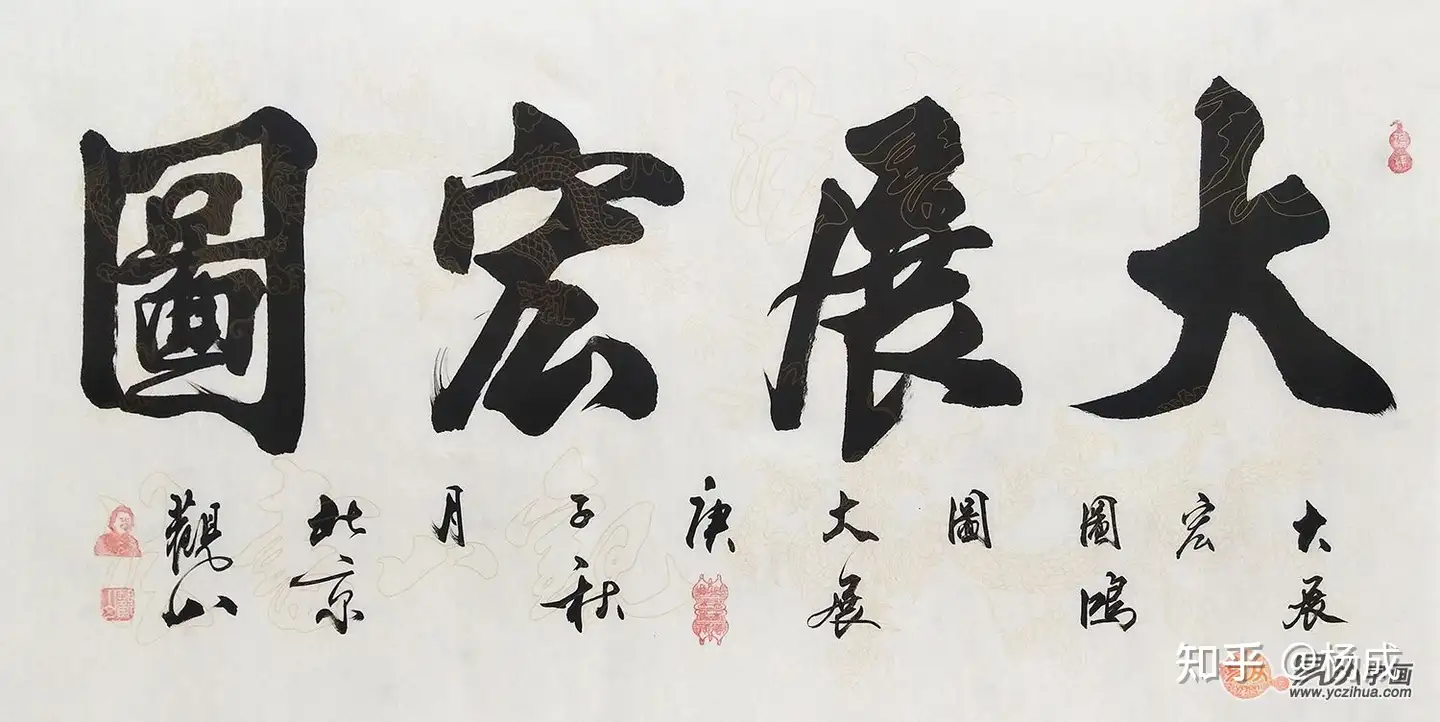 大展宏圖
大展
宏
圖鴻
圖
大展
庚
子秋
月
北京
觀山
知乎 @杨成
易从字画
www.yczihua.com